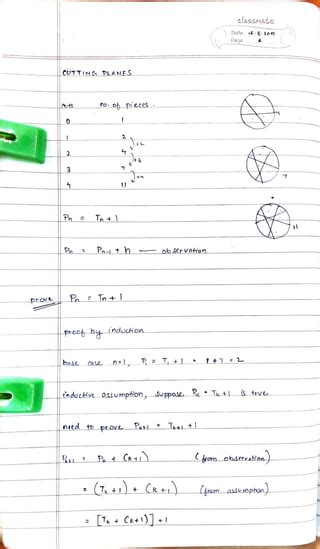 classmate
Date
Page
CUTTING PLANES
no. of pieces.
0 1
1 2
2 4
3 7
4 11
7
11
Pn = Tn + 1
Pn = Pn-1 + n — observation
prove Pn = Tn + 1
proof by induction
base case n=1, P1 = T1 + 1 = 1 + 1 = 2
inductive assumption, suppose Pk = Tk + 1 is true
need to prove Pk+1 = Tk+1 + 1
Pk+1 = Pk + (k+1) (from observation)
= (Tk + 1) + (k+1) (from assumption)
= [Tk + (k+1)] + 1